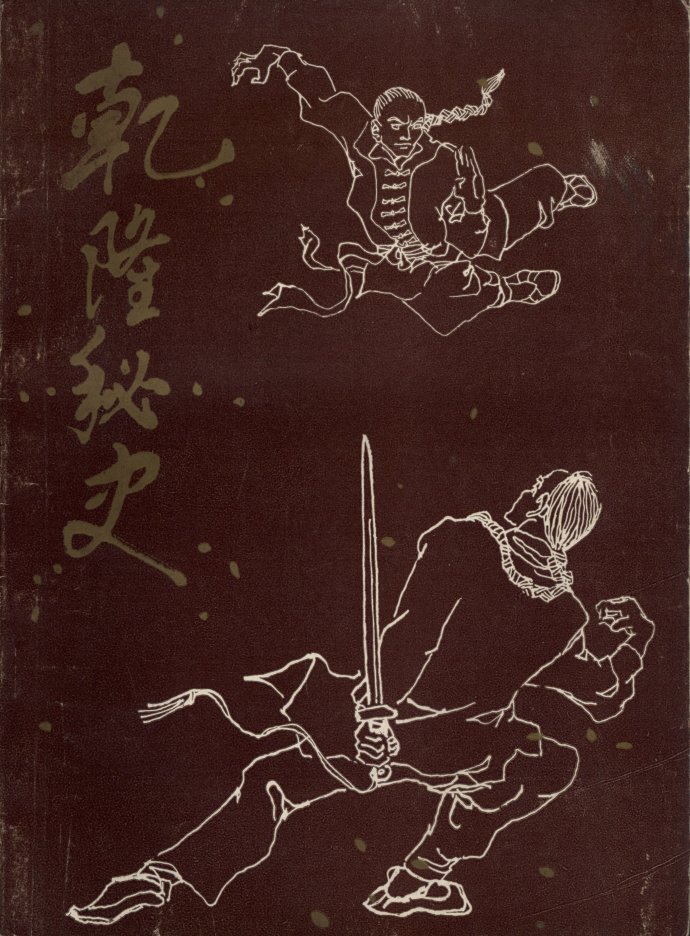 乾隆秘史